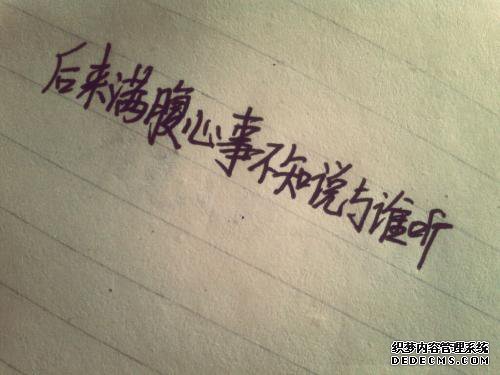 后来满腹心事不知说与谁听
织梦内容管理系统
DEDECMS.COM